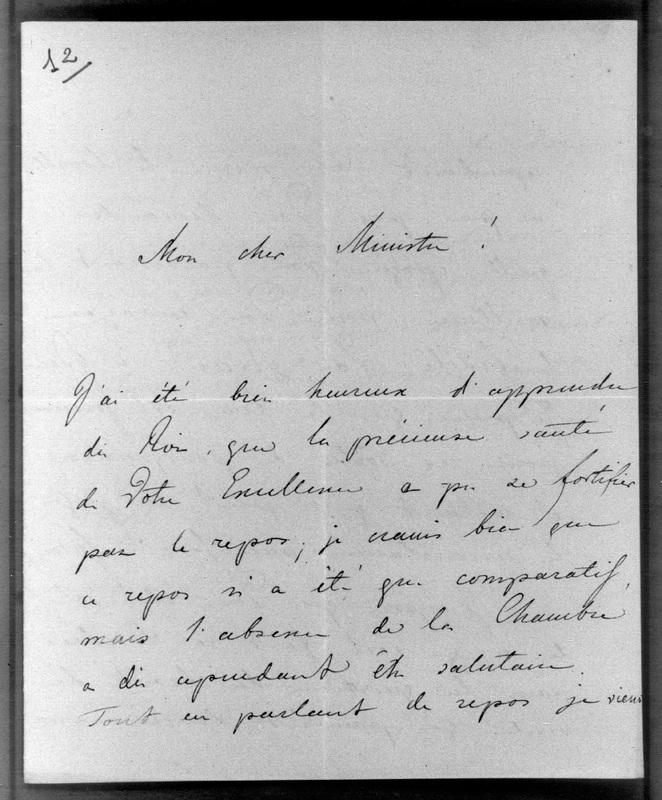 12/
Mon cher Ministre !
J'ai été bien heureux d'apprendre
du Roi, que la précieuse santé
de Votre Excellence a pu se fortifier
par le repos; je crains bien que
ce repos n'a été que comparatif,
mais l'absence de la Chambre
a dû cependant être salutaire.
Tout en parlant de repos je viens